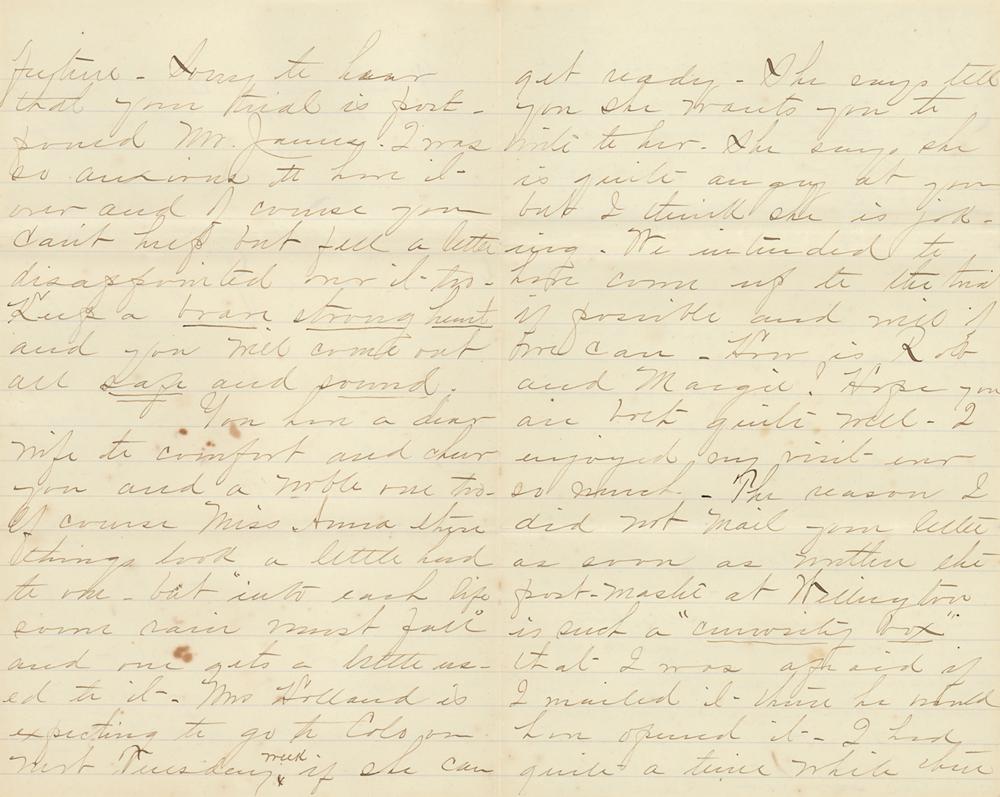 future - Sorry to hear
that your trial is post-
poned Mr. James. I was
so anxious to have it
over and of course you
can't help but feel a little
disappointed over it too.
Keep a brave strong heart
and you will come out
all safe and sound.
You have a dear
wife to comfort and cheer
you and a noble one too.
Of course Miss Anna these
things look a little hard
to one - but "into each life
some rain must fall"
and one gets a little us-
ed to it - Mrs Holland is
expecting to go to Colo on
next Tuesday week if she can
get ready - She says tell
you she wants you to
write to her. She says she
is quite angry at you
but I think she is jok-
ing. We intended to
have come up to the trial
if possible and will if
we can - How is Rob
and Margie? Hope you
are both quite well - I
enjoyed my visit ever
so much - The reason I
did not mail your letter
as soon as written the
post-master at Wellington
is such a "curiosity box"
that I was afraid if
I mailed it there he would
have opened it - I had
quite a time while there